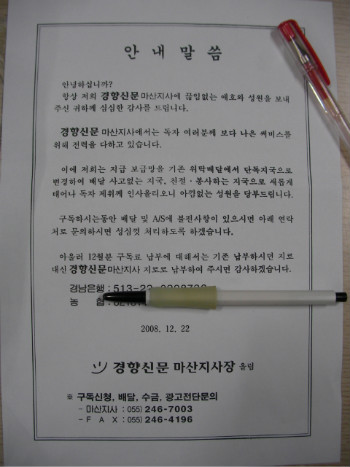 안 내 말 씀
안녕하십니까?
항상 저희 경향신문 마산지사에 끊임없는 애호와 성원을 보내
주신 귀하께 심심한 감사를 드립니다.
경향신문 마산지사에서는 독자 여러분께 보다 나은 써비스를
위해 전력을 다하고 있습니다.
이에 저희는 지금 보급망을 기존 위탁배달에서 단독지국으로
변경하여 배달 사고없는 지국, 친절·봉사하는 지국으로 새롭게
태어나 독자 제위께 인사올리오니 아낌없는 성원을 당부드립니다.
구독하시는동안 배달 및 A/S에 불편사항이 있으시면 아래 연락
처로 문의하시면 성심껏 처리하도록 하겠습니다.
아울러 12월분 구독료 납부에 대해서는 기존 납부하시던 지로
대신 경향신문마산지사 지로로 납부하여 주시면 감사하겠습니다.
경남은행 : 513-22-
농 협 :
2008. 12. 22
경향신문 마산지사장 올림
※ 구독신청, 배달, 수금, 광고전단문의
- 마산지사 : 055) 246-7003
- F A X : 055) 246-4196